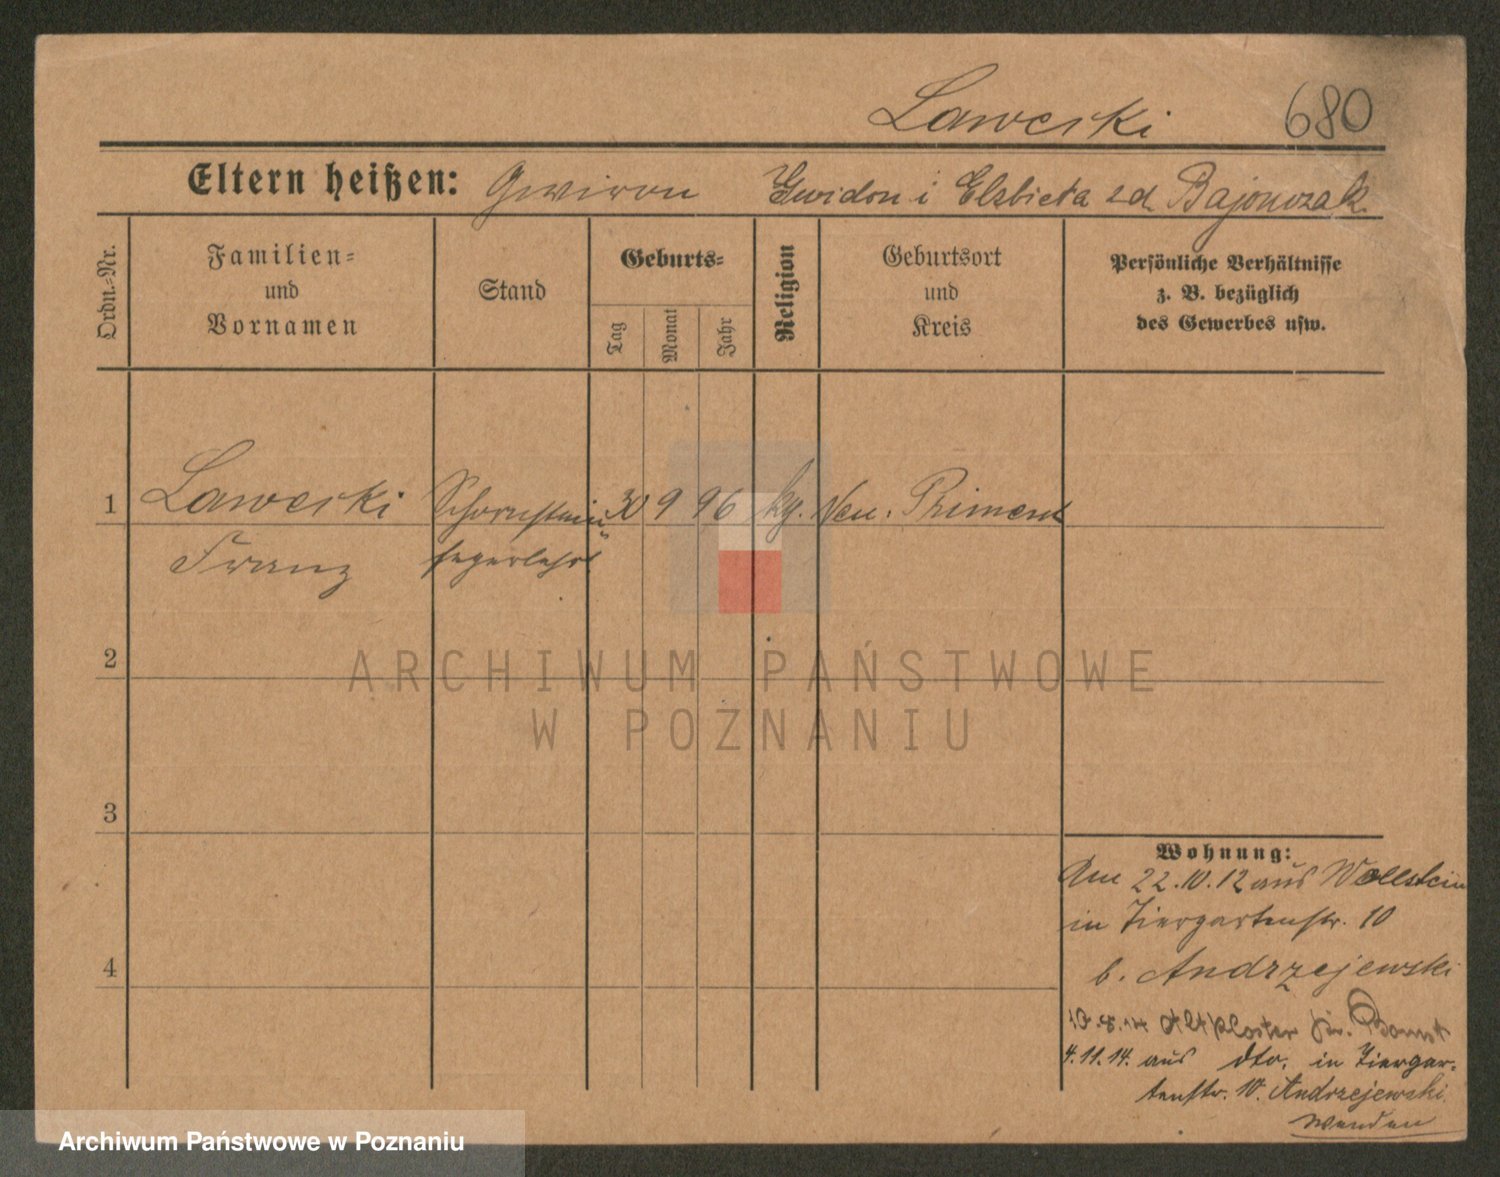 Laweski 680
Eltern heißen: Gwiron Gwidon i Elzbieta z d. Bajonczak
Ordn.-Nr.
Familien-
und
Vornamen
Stand
Geburts-
Tag
Monat
Jahr
Religion
Geburtsort
und
Kreis
Persönliche Verhältnisse
z. B. bezüglich
des Gewerbes usw.
1 Laweski Schornstein- 30 9 96 kg. Neu. Priment
Franz fegerlehrl
2
3
4
Wohnung:
Am 22.10.12 aus Wollstein
in Tiergartenstr. 10
b. Andrzejewski
10.8.14 Altkloster Kr. Bomst
4.11.14. aus dto. in Tiergar-
tenstr. 10. Andrzejewski.
wenden
ARCHIWUM PAŃSTWOWE
W POZNANIU
Archiwum Państwowe w Poznaniu